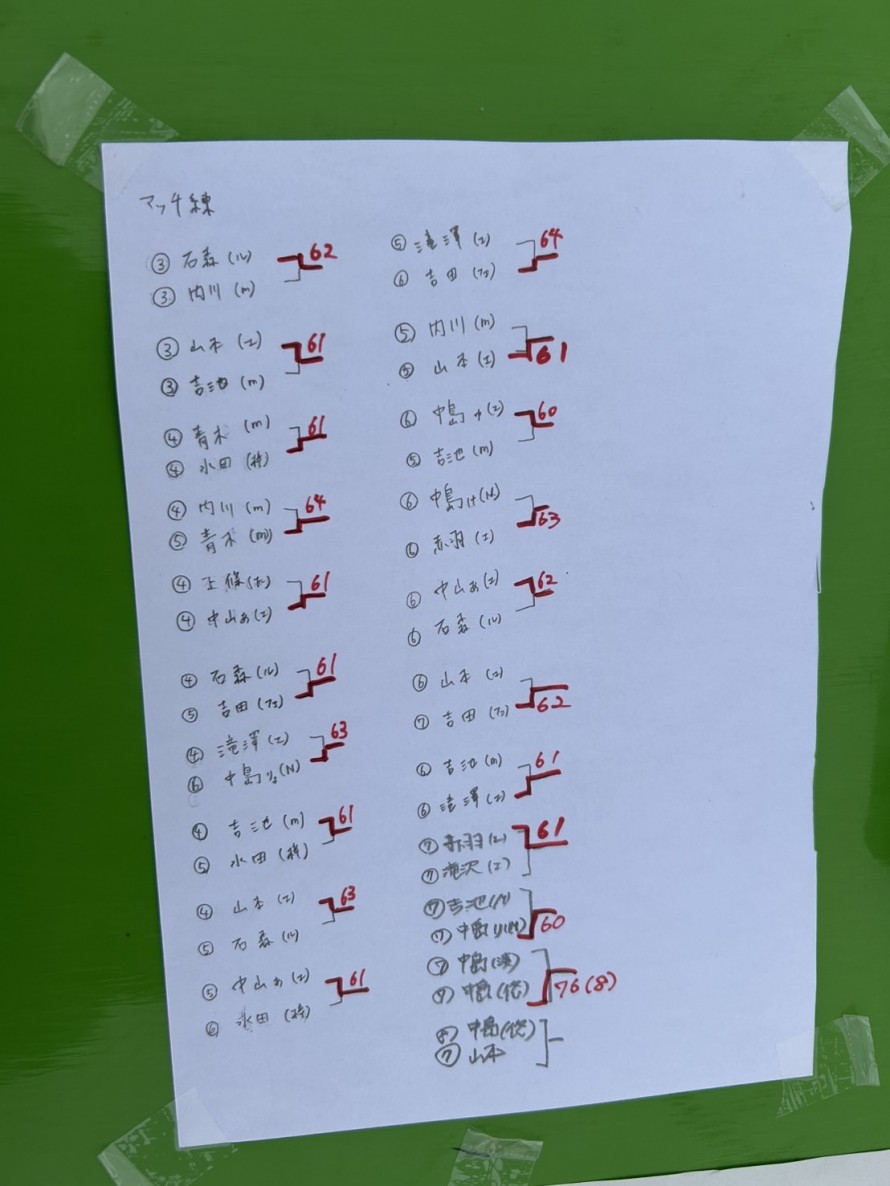 マッチ練
③ 石森 (ル) 62
③ 内川 (m)
③ 山本 (エ) 61
③ 吉池 (m)
④ 青木 (m) 61
④ 永田 (袴)
④ 内川 (m) 64
⑤ 青木 (m)
④ 61
④ 中山あ(エ)
④ 石森 (ル) 61
⑤ 吉田 (フェ)
④ 滝澤 (エ) 63
⑥ 中島りょ(N)
④ 吉池 (m) 61
⑤ 永田
④ 山本 (エ) 63
⑤ 石森 (ル)
⑤ 中山あ (エ) 61
⑥ 永田
⑤ 滝澤 (エ) 64
⑥ 吉田 (フェ)
⑤ 内川 (m)
⑤ 山本 (エ) 61
⑥ 中島 (エ) 60
⑤ 吉池 (m)
⑥ 中島け(N)
⑥ 赤羽 (エ) 63
⑥ 中山あ(エ) 62
⑥ 石森 (ル)
⑥ 山本 (エ)
⑦ 吉田 (フェ) 62
⑥ 吉池 (m) 61
⑥ 滝澤 (エ)
⑦ 赤羽(エ) 61
⑦ 滝沢 (エ)
⑦ 吉池
⑦ 中島 60
⑦ 中島
⑦ 中島 76(8)
⑧ 中島
⑦ 山本